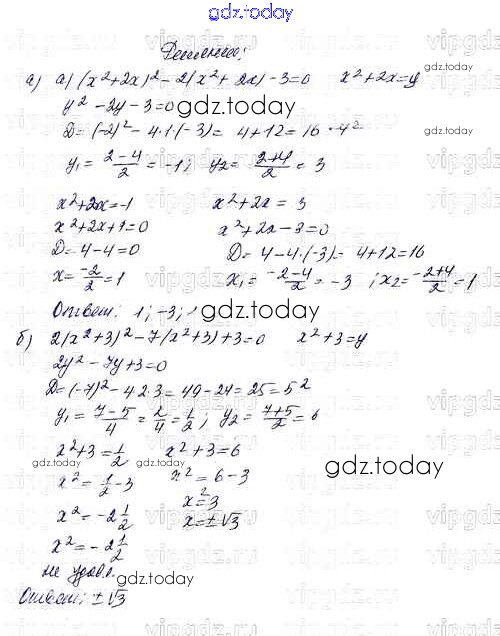 gdz.today
Решение:
а) а) (x²+2x)² - 2(x²+2x) - 3=0 x²+2x=y
y² - 2y - 3=0
gdz.today
D= (-2)² - 4·1·(-3)= 4+12=16=4²
y₁= (2-4)/2 = -1; y₂= (2+4)/2 = 3
x²+2x=-1 x²+2x = 3
x²+2x+1=0 x²+2x-3=0
D=4-4=0 D= 4-4·(-3)= 4+12=16
x= -2/2 = 1 x₁= (-2-4)/2 = -3 ; x₂= (-2+4)/2 = 1
Ответ: 1; -3;
gdz.today
б) 2(x²+3)² - 7(x²+3)+3=0 x²+3=y
2y² - 7y+3=0
D= (-7)² - 4·2·3= 49-24=25=5²
y₁= (7-5)/4 = 2/4 = 1/2; y₂= (7+5)/2 = 6
x²+3= 1/2 x²+3=6
gdz.today
x²= 1/2 - 3 x²= 6-3
x²= -2 1/2 x²=3
x²= -2 1/2 x=±√3
не удовл.
gdz.today
Ответ: ±√3